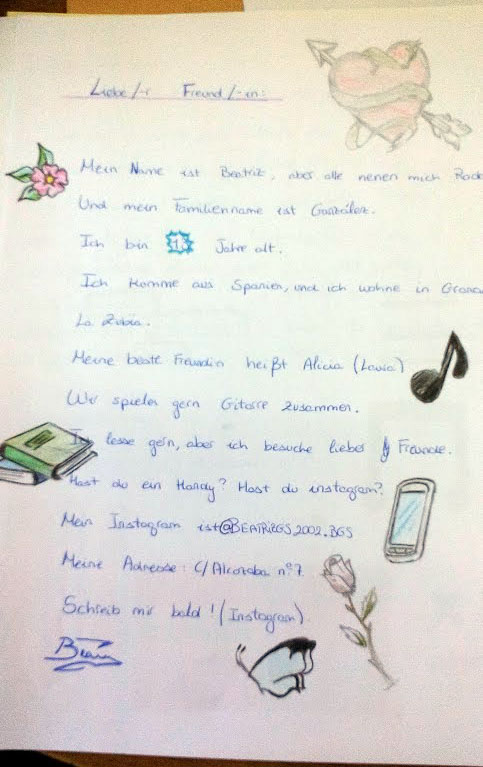 Liebe/-r Freund/-in:
Mein Name ist Beatriz, aber alle nenen mich
Und mein Familienname ist González.
Ich bin 13 Jahre alt.
Ich komme aus Spanien, und ich wohne in
La Zubia.
Meine beste Freundin heißt Alicia (Lawia)
Wir spielen gern Gitarre zusammen.
Ich lesse gern, aber ich besuche lieber Freunde.
Hast du ein Handy? Hast du instagram?
Mein Instagram ist @BEATRIZGS2002.BGS
Meine Adresse: C/Alcoraba nº7.
Schreib mir bald! (Instagram).